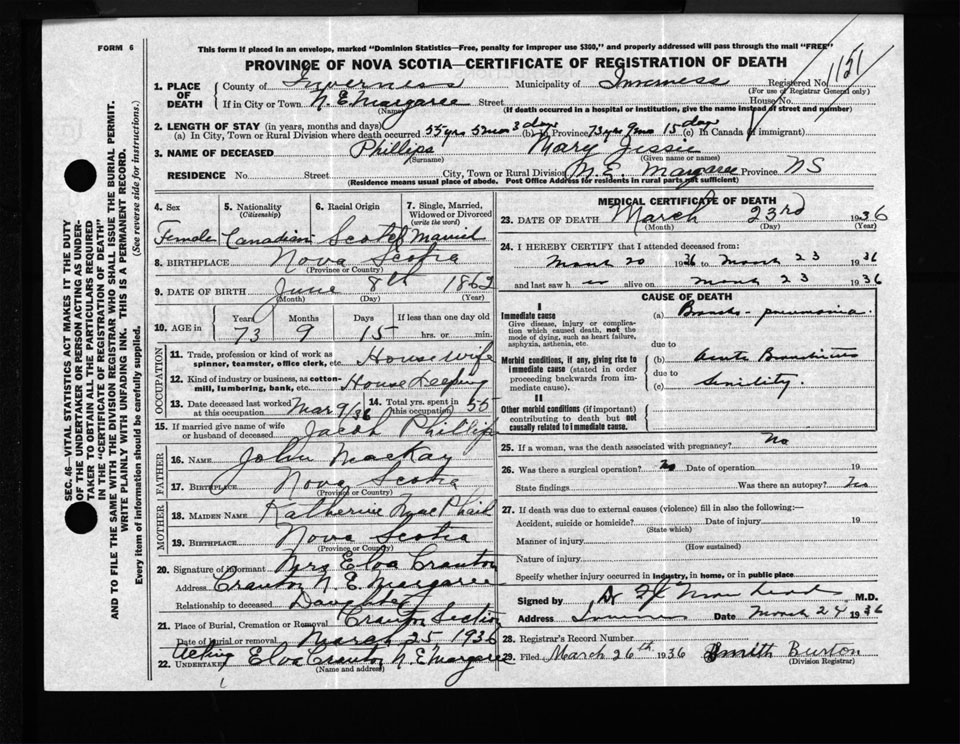 FORM 6
This form if placed in an envelope, marked "Dominion Statistics—Free, penalty for improper use $300," and properly addressed will pass through the mail "FREE"
PROVINCE OF NOVA SCOTIA—CERTIFICATE OF REGISTRATION OF DEATH
1151
1. PLACE OF DEATH
County of Inverness Municipality of Inverness Registered No.
(For use of Registrar General only)
If in City or Town N.E. Margaree Street House No.
(Name) (If death occurred in a hospital or institution, give the name instead of street and number)
2. LENGTH OF STAY (in years, months and days)
(a) In City, Town or Rural Division where death occurred 55 yrs 5 mos 3 days (b) In Province 73 yrs 9 mos 15 days (c) In Canada (if immigrant)
3. NAME OF DECEASED Phillips Mary Jessie
(Surname) (Given name or names)
RESIDENCE No. Street City, Town or Rural Division N.E. Margaree Province NS
(Residence means usual place of abode. Post Office Address for residents in rural parts not sufficient)
4. Sex Female
5. Nationality (Citizenship) Canadian
6. Racial Origin Scotch
7. Single, Married, Widowed or Divorced (write the word) Married
8. BIRTHPLACE Nova Scotia
(Province or Country)
9. DATE OF BIRTH June 8th 1862
(Month) (Day) (Year)
10. AGE in Years Months Days If less than one day old
73 9 15 hrs. or min.
OCCUPATION
11. Trade, profession or kind of work as spinner, teamster, office clerk, etc. Housewife
12. Kind of industry or business, as cotton-mill, lumbering, bank, etc. House Keeping
13. Date deceased last worked at this occupation Mar 9/36
14. Total yrs. spent in this occupation 55
15. If married give name of wife or husband of deceased Jacob Phillips
FATHER
16. NAME John MacKay
17. BIRTHPLACE Nova Scotia
(Province or Country)
MOTHER
18. MAIDEN NAME Katherine
19. BIRTHPLACE Nova Scotia
(Province or Country)
20. Signature of informant Mrs Elva Cranton
Address Cranton N.E. Margaree
Relationship to deceased Daughter
21. Place of Burial, Cremation or Removal Cranton Section
Date of Burial or removal March 25 1936
Acting
22. UNDERTAKER Elva Cranton N.E. Margaree
(Name and address)
MEDICAL CERTIFICATE OF DEATH
23. DATE OF DEATH March 23rd 1936
(Month) (Day) (Year)
24. I HEREBY CERTIFY that I attended deceased from:
March 20 1936 to March 23 1936
and last saw h er alive on March 23 1936
CAUSE OF DEATH
I
Immediate cause
Give disease, injury or complication which caused death, not the mode of dying, such as heart failure, asphyxia, asthenia, etc.
(a) Broncho-pneumonia.
due to
Morbid conditions, if any, giving rise to immediate cause (stated in order proceeding backwards from immediate cause).
(b) Acute Bronchitis
due to
(c) Senility.
II
Other morbid conditions (if important) contributing to death but not causally related to immediate cause.
25. If a woman, was the death associated with pregnancy? No
26. Was there a surgical operation? No Date of operation 19
State findings Was there an autopsy? No
27. If death was due to external causes (violence) fill in also the following:—
Accident, suicide or homicide? Date of injury 19
(State which)
Manner of injury
(How sustained)
Nature of injury
Specify whether injury occurred in industry, in home, or in public place
Signed by M.D.
Address Inverness Date March 24 1936
28. Registrar's Record Number
29. Filed March 26th 1936 Smith Burton
(Division Registrar)
SEC. 46—VITAL STATISTICS ACT MAKES IT THE DUTY
OF THE UNDERTAKER OR PERSON ACTING AS UNDER-
TAKER TO OBTAIN ALL THE PARTICULARS REQUIRED
IN THE "CERTIFICATE OF REGISTRATION OF DEATH"
AND TO FILE THE SAME WITH THE DIVISION REGISTRAR WHO SHALL ISSUE THE BURIAL PERMIT.
WRITE PLAINLY WITH UNFADING INK. THIS IS A PERMANENT RECORD.
Every item of information should be carefully supplied. (See reverse side for instructions.)